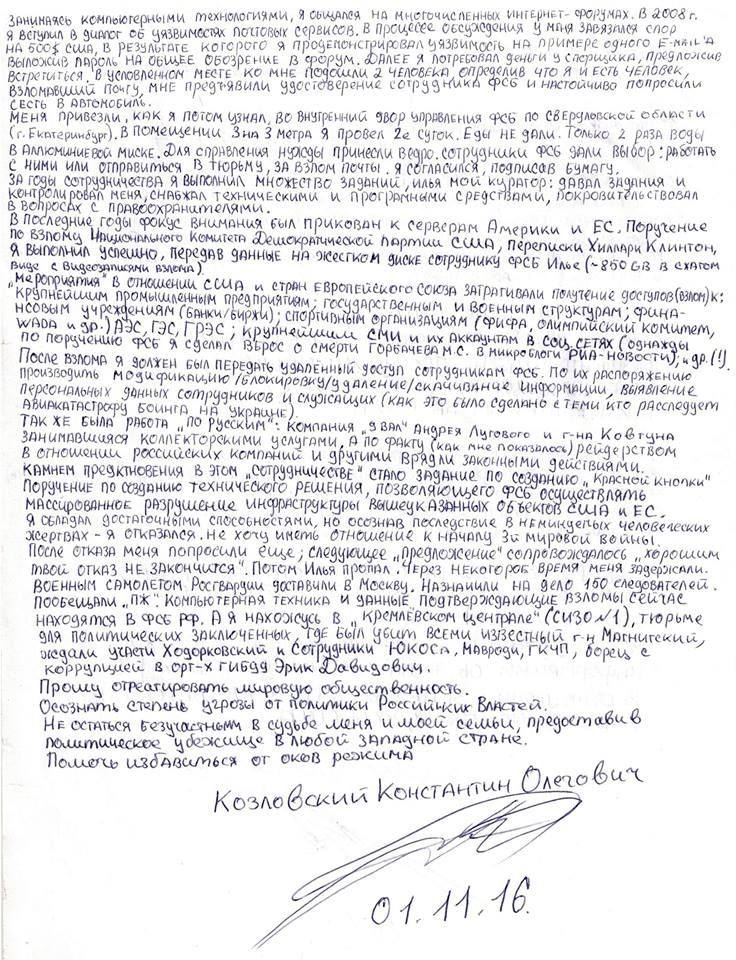 Занимаясь компьютерными технологиями, я общался на многочисленных интернет-форумах. В 2008 г.
я вступил в диалог об уязвимостях почтовых сервисов. В процессе обсуждения у меня завязался спор
на 500$ США, в результате которого я продемонстрировал уязвимость на примере одного E-mail'а
выложив пароль на общее обозрение в форум. Далее я потребовал деньги у спорщика, предложив
встретиться. В условленном месте ко мне подошли 2 человека, определив что я и есть человек,
взломавший почту, мне предъявили удостоверение сотрудника ФСБ и настойчиво попросили
сесть в автомобиль.
Меня привезли, как я потом узнал, во внутренний двор управления ФСБ по Свердловской области
(г. Екатеринбург). В помещении 3 на 3 метра я провел 2е суток. Еды не дали. Только 2 раза воды
в аллюминиевой миске. Для справления нужды принесли ведро. Сотрудники ФСБ дали выбор: работать
с ними или отправиться в тюрьму, за взлом почты. Я согласился, подписав бумагу.
За годы сотрудничества я выполнил множество заданий, Илья мой куратор: давал задания и
контролировал меня, снабжал техническими и програмными средствами, покровительствовал
в вопросах с правоохранителями.
В последние годы фокус внимания был прикован к серверам Америки и ЕС. Поручение
по взлому Национального Комитета Демократической партии США, переписки Хиллари Клинтон,
я выполнил успешно, передав данные на жестком диске сотруднику ФСБ Илье (~850 GB в сжатом
виде с видеозаписями взлома)
„Мероприятия" в отношении США и стран Европейского Союза затрагивали получение доступов (взлом) к:
крупнейшим промышленным предприятиям; государственным и военным структурам; фина-
нсовым учреждениям (банки/биржи); спортивным организациям (ФИФА, олимпийский комитет,
WADA и др.) АЭС, ГЭС, ГРЭС; крупнейшим СМИ и их аккаунтам в соц. сетях (однажды
по поручению ФСБ я сделал вброс о смерти Горбачева М.С. в микроблоги РИА-новости); и др. (!).
После взлома я должен был передать удаленный доступ сотрудникам ФСБ. По их распоряжению
производить модификацию/блокировку/удаление/скачивание информации, выявление
персональных данных сотрудников и служащих (как это было сделано с теми кто расследует
авиакатастрофу боинга на Украине).
Так же была работа „по русским": компания „9 вал" Андрея Лугового и г-на Ковтуна
занимавшиеся коллекторскими услугами, а по факту (как мне показалось) рейдерством
в отношении российских компаний и другими врядли законными действиями.
Камнем предктновения в этом „сотрудничестве" стало задание по созданию „красной кнопки"
Поручение по созданию технического решения, позволяющего ФСБ осуществлять
массированное разрушение инфраструктуры вышеуказанных объектов США и ЕС.
Я обладал достаточными способностями, но осознав последствие в неминуемых человеческих
жертвах - я отказался. Не хочу иметь отношение к началу 3й мировой войны.
После отказа меня попросили еще; следующее „предложение" сопровождалось „хорошим
твой отказ не закончится". Потом Илья пропал. Через некоторое время меня задержали.
Военным самолетом Росгвардии доставили в Москву. Назначили на дело 150 следователей.
Пообещали „ПЖ". Компьютерная техника и данные подтверждающие взломы сейчас
находятся в ФСБ РФ. А я нахожусь в „кремлёвском централе" (СИЗО №1), тюрьме
для политических заключенных, где был убит всеми известный г-н Магнитский,
ждали участи Ходорковский и сотрудники ЮКОСа, Мавроди, ГКЧП, борец с
коррупцией в орг-х ГИБДД Эрик Давидович.
Прошу отреагировать мировую общественность.
Осознать степень угрозы от политики Российских Властей.
Не остаться безучастным в судьбе меня и моей семьи, предоставив
политическое убежище в любой западной стране.
Помочь избавиться от оков режима
Козловский Константин Олегович
01.11.16.